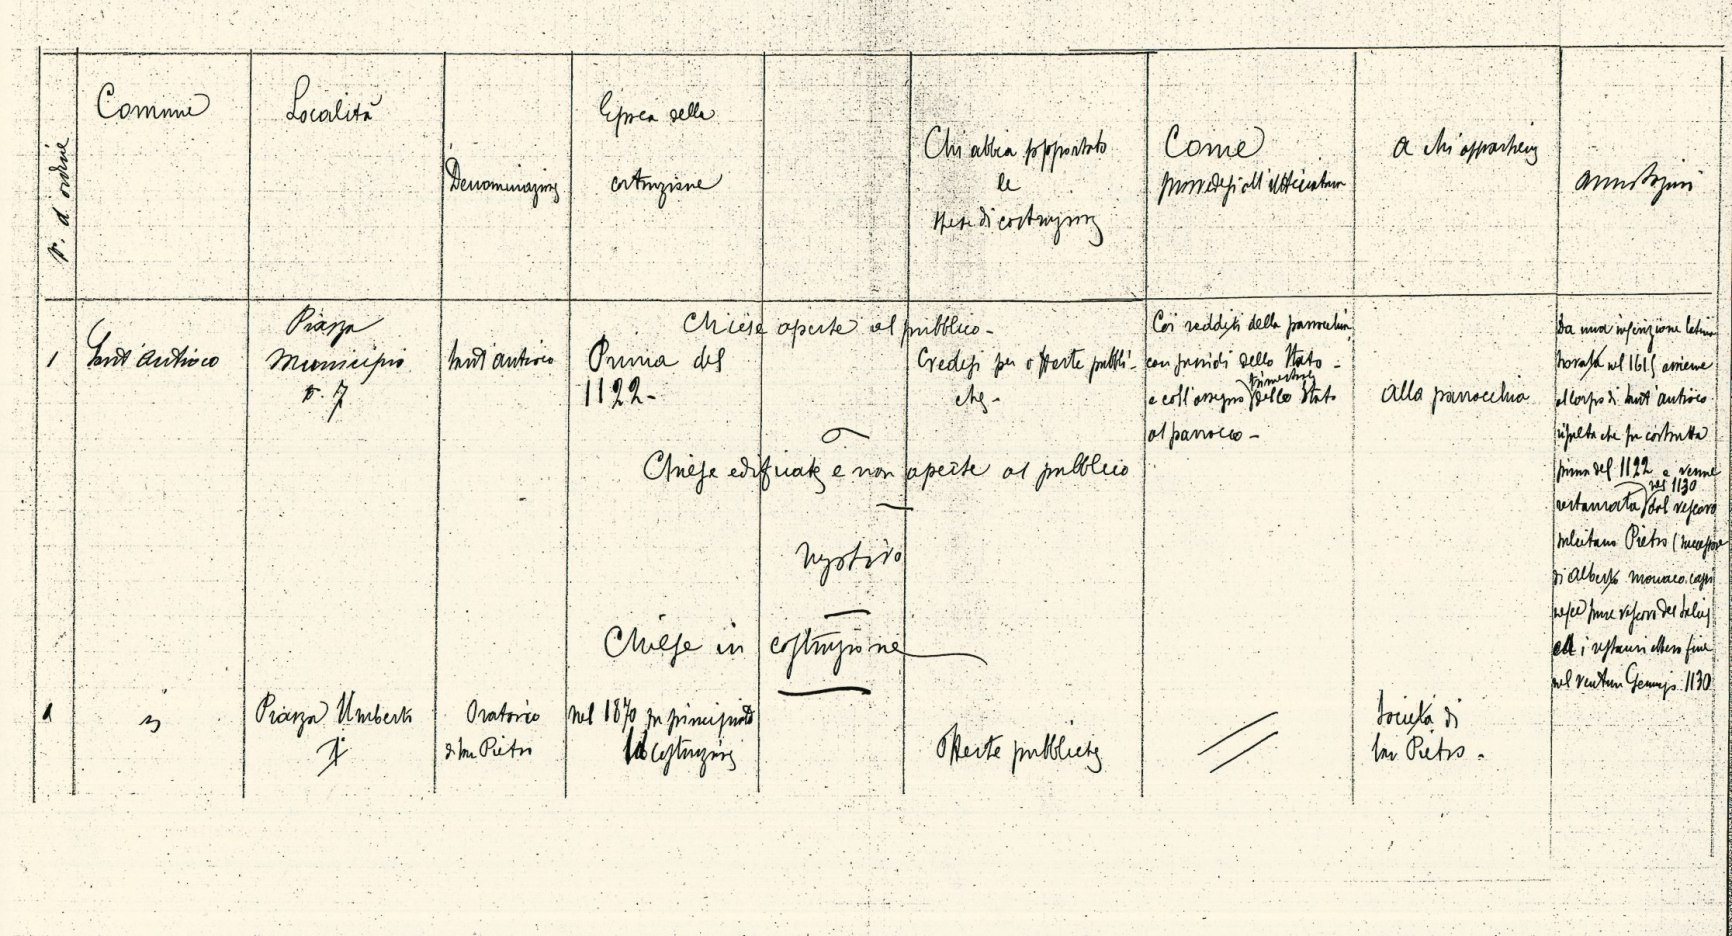 n. d'ordine
Comune
Località
Denominazione
Epoca della
costruzione
Chi abbia sopportato
le
spese di costruzione
Come
provvedesi all'
a chi appartiene
annotazioni
Chiese aperte al pubblico -
1
Sant'Antioco
Piazza
Municipio
n. 7
Sant'Antioco
Prima del
1122 -
Credesi per offerte pubbli-
che -
Coi redditi della parrocchia
con sussidi dello Stato -
trimestrale
e coll'assegno dello Stato
al parroco -
Alla parrocchia
Da una inscrizione latina
trovata nel 1615 assieme
al corpo di Sant'Antioco
risulta che fu costrutta
prima del 1122 e venne
nel 1130
restaurata dal vescovo
sulcitano Pietro (successore
di Alberto monaco
pure vescovo de
i restauri ebbero fine
nel 1130
Chiese edificate e non aperte al pubblico
Negativo
Chiese in costruzione
1
"
Piazza Umberto
1
Oratorio
di San Pietro
Nel 1870 fu principiata
la costruzione
Offerte pubbliche
//
Società di
San Pietro -